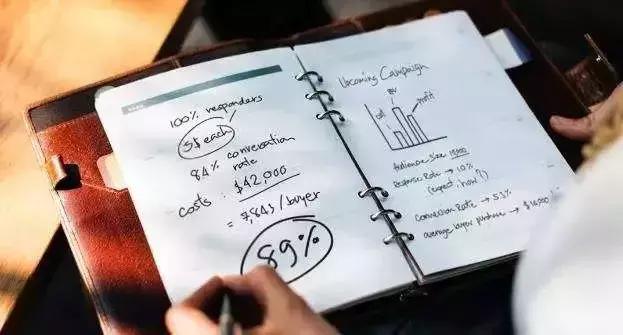 100% responders
5$ each
84% conversation
rate
costs: $42,000
= 7,843/buyer
89%
Upcoming Campaign
profit
Audience Size 10,000
Response Rate → 10%
(expect, how?)
Connection Rate → 5.3%
average buyer purchase →